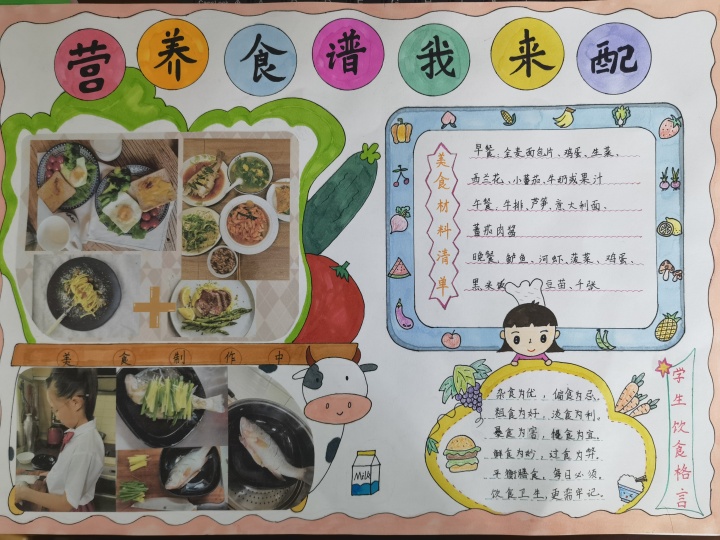 营养食谱我来配
美食材料清单
早餐：全麦面包片、鸡蛋、生菜、
西兰花、小番茄、牛奶或果汁
午餐：牛排、芦笋、意大利面、
番茄肉酱
晚餐：鲈鱼、河虾、菠菜、鸡蛋、
黑米 豆苗、千张
美食制作中
Milk
学生饮食格言
杂食为优，偏食为忌。
粗食为好，淡食为利。
暴食为害，慢食为宜。
鲜食为妙，过食为弊。
平衡膳食，每日必须。
饮食卫生，更需牢记。